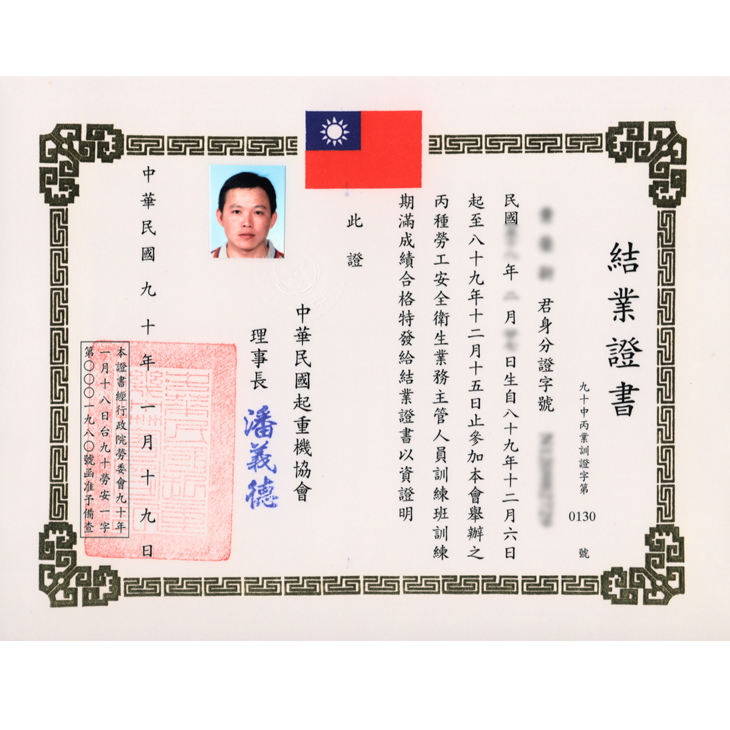 結業證書
九十中丙業訓證字第 0130 號
君身分證字號
民國 年 月 日生自八十九年十二月六日
起至八十九年十二月十五日止參加本會舉辦之
丙種勞工安全衛生業務主管人員訓練班訓練
期滿成績合格特發給結業證書以資證明
此證
中華民國起重機協會
理事長 潘義德
中華民國九十年一月十九日
本證書經行政院勞委會九十年
一月十八日台九十勞安一字
第〇〇〇一九八〇號函准予備查